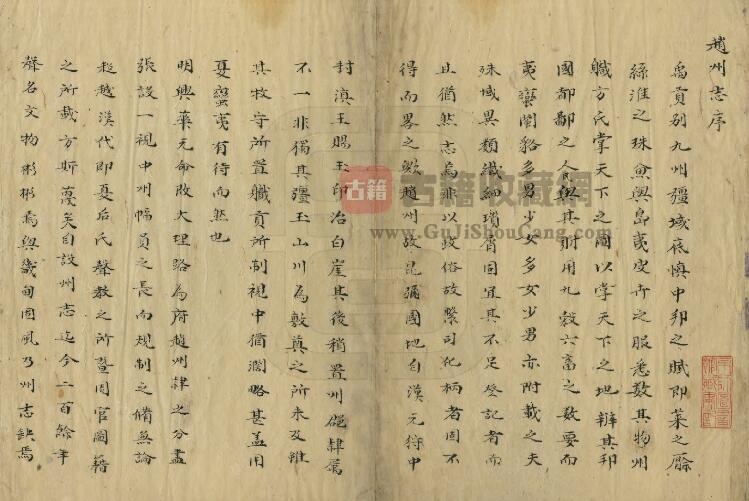 趙州志序
禹貢别九州疆域底慎中邦之賦即萊之檿
絲淮之珠魚與島夷皮卉之服悉数其物州
職方氏掌天下之圖以掌天下之地辨其邦
國都鄙之人民與其財用九穀六畜之数要而
夷蠻閩貉多男少女多女少男亦附載之夫
殊域異類纖細瑣屑固宜其不足登記者而
且猶然志焉非以政俗故繫司化柄者固不
得而畧之歟趙州故昆彌國地自漢元狩中
封滇王賜王印治白崖其後稍置州郡隸屬
不一非獨其疆土山川為敷奠之所未及雖
其牧守所置職貢所制視中猶濶略甚盖用
夏蠻夷有待而然也
明興藥元命改大理路為府趙州隸之分畫
張設一視中州幅員之長而規制之備無論
超越漢代即夏后氏聲教之所暨周官圖籍
之所載方斯蔑矣自設州志迄今二百餘年
聲名文物彬彬焉與畿甸同風乃州志缺焉
古籍
古籍收藏網
www.GuJiShouCang.com